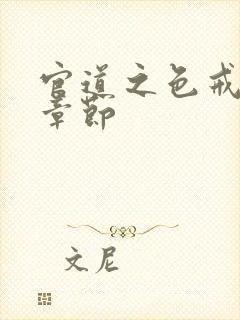 官道之色戒
章节
文尼